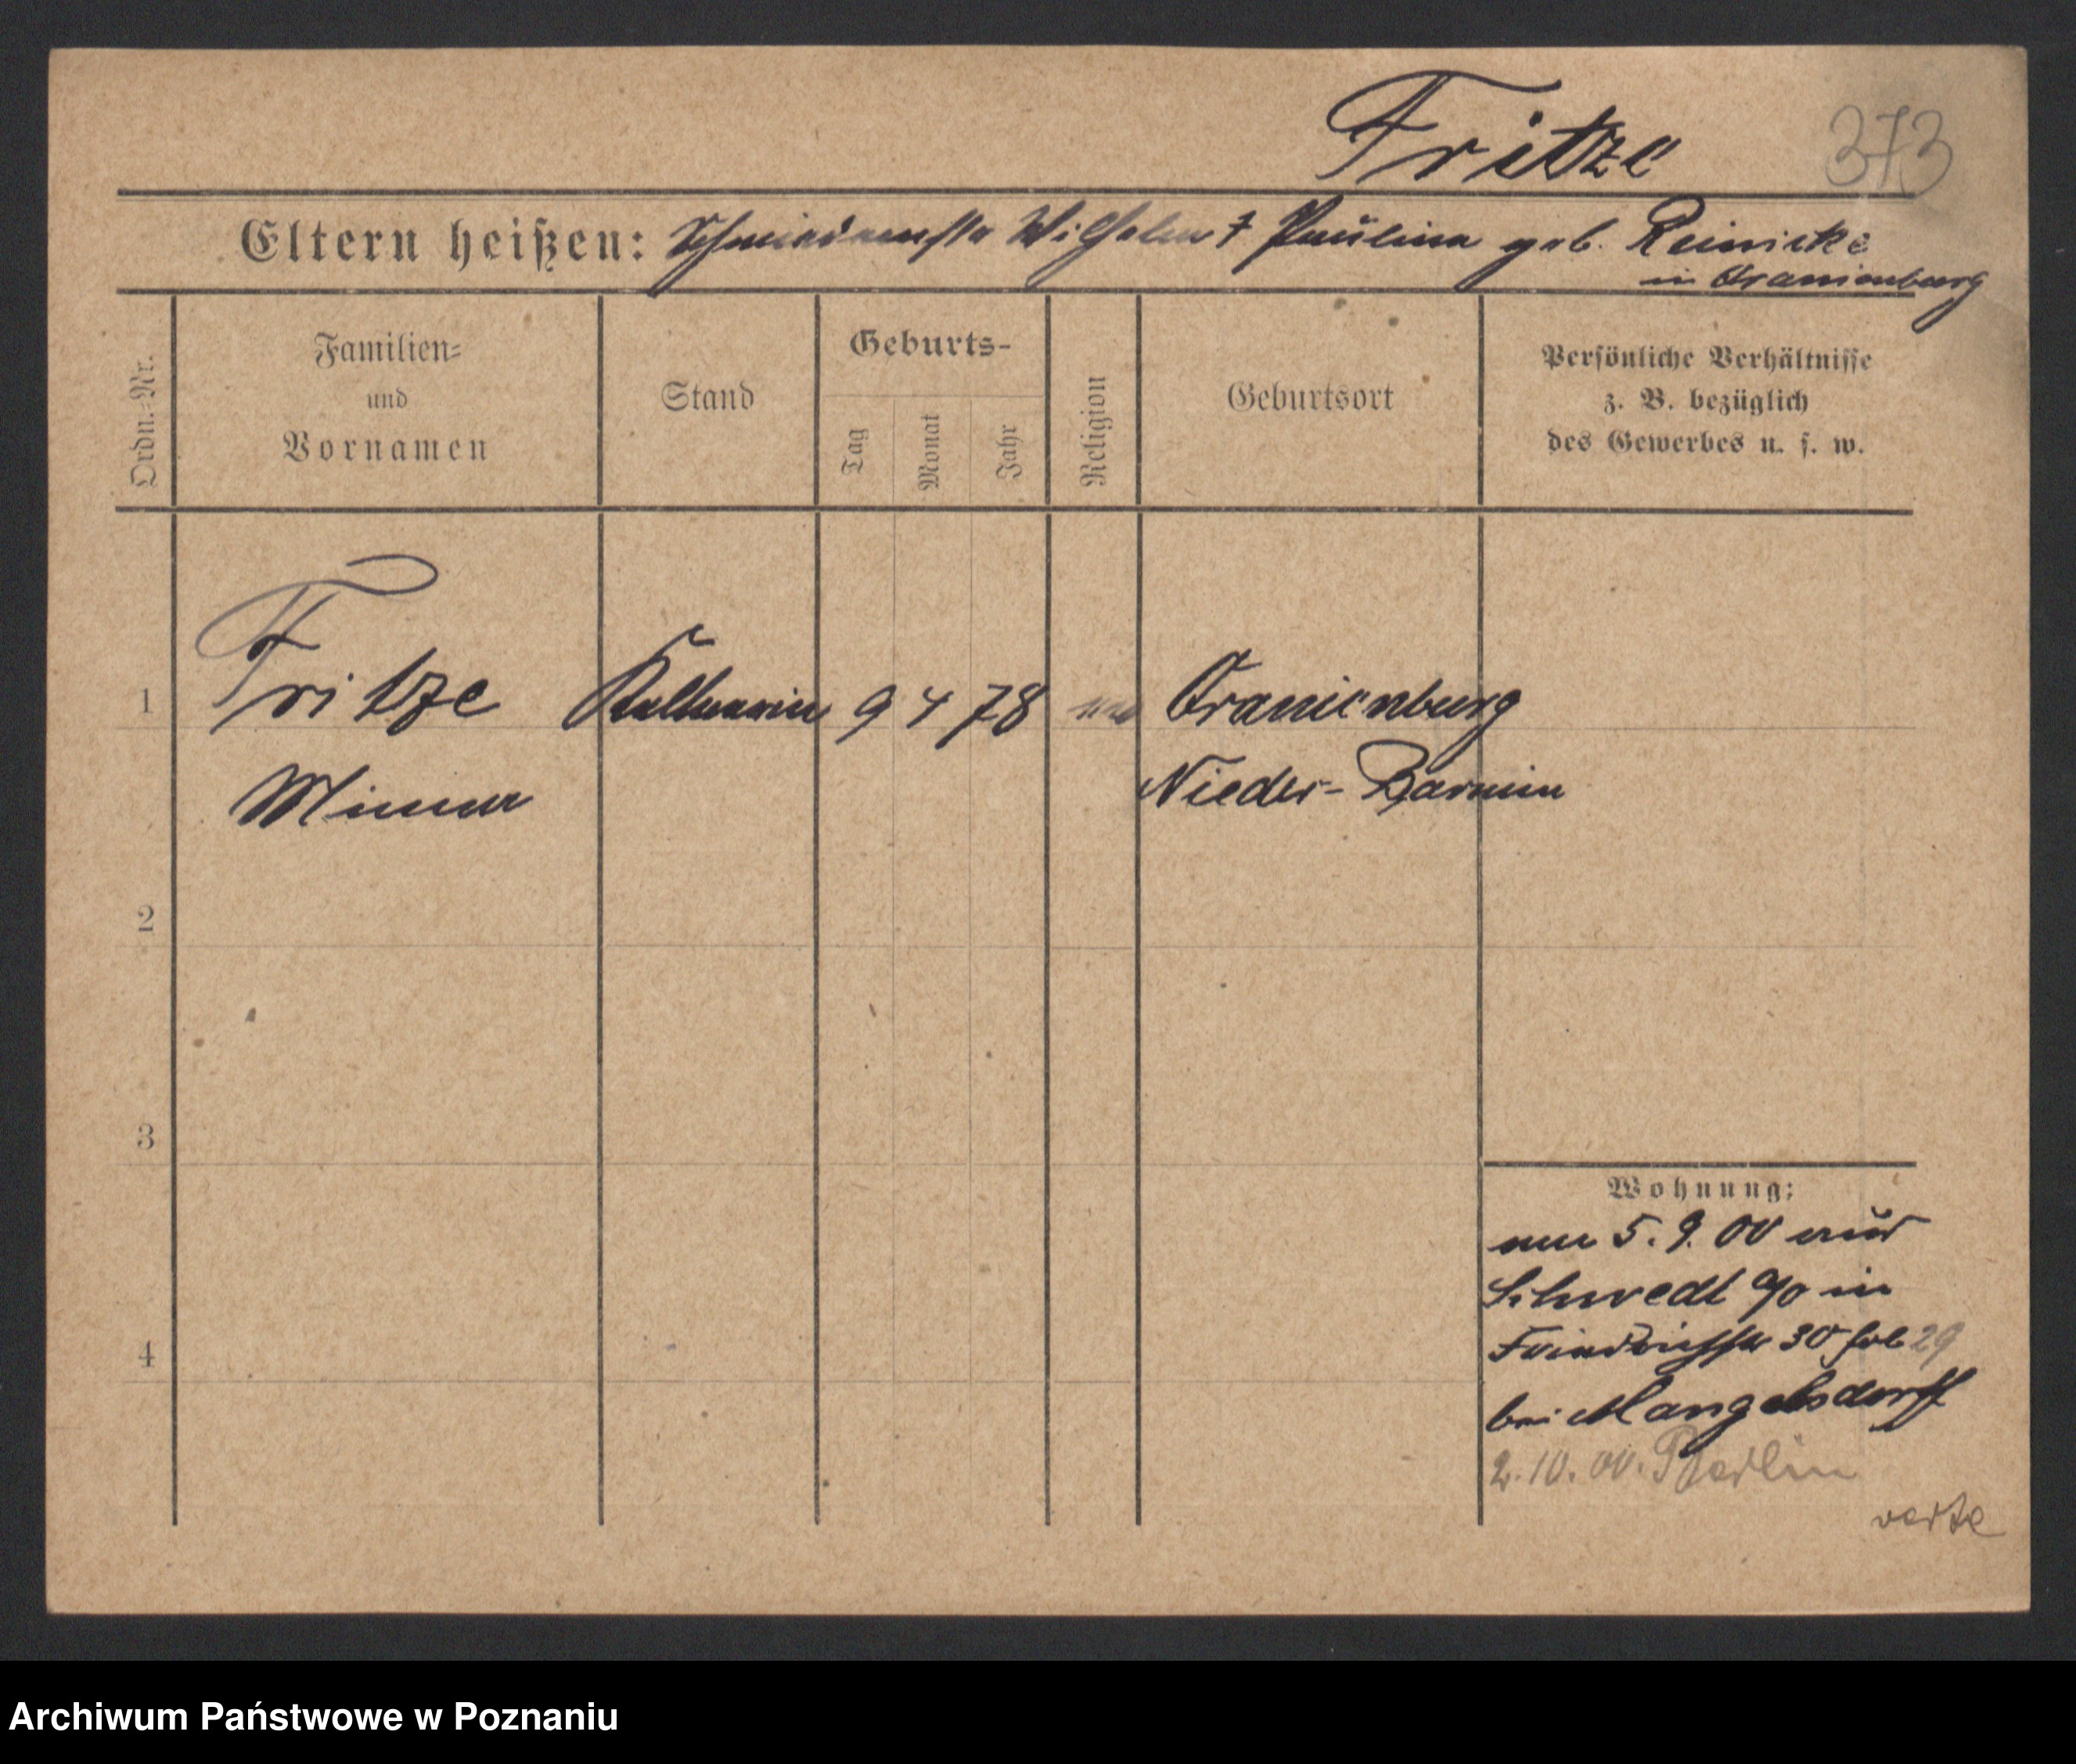 Fritze 373
Eltern heißen: Schmiedemstr Wilhelm † Pauline geb. Reinicke
in Oranienburg
Ordn.-Nr.
Familien-
und
Vornamen
Stand
Geburts-
Tag
Monat
Jahr
Religion
Geburtsort
Persönliche Verhältnisse
z. B. bezüglich
des Gewerbes u. s. w.
1 Fritze Kellnerin 9 4 78 Oranienburg
Minna Nieder-Barnim
2
3
4
Wohnung:
5. 9. 00 aus
Schwedt a/O in
Friedrichstr 30 29
bei Mangelsdorff
2. 10. 00. Berlin
verte
Archiwum Państwowe w Poznaniu